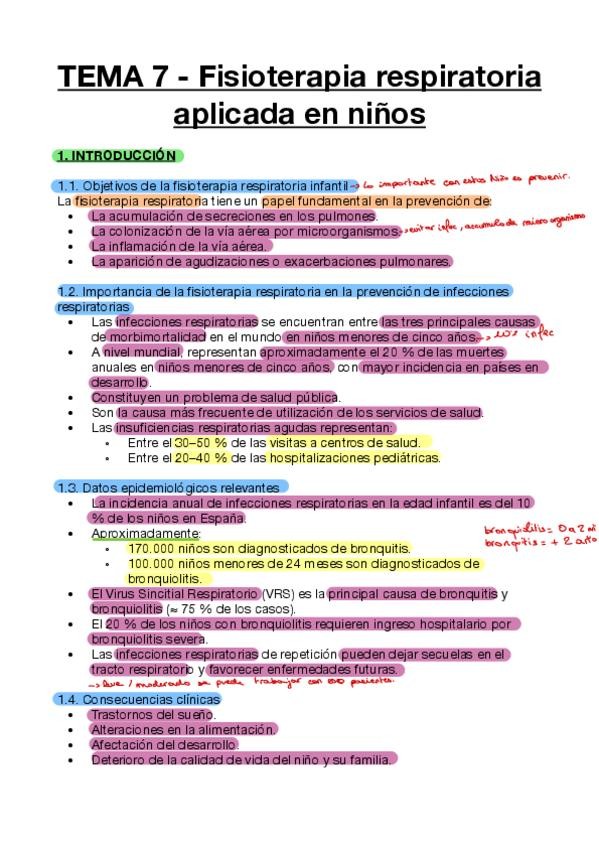 TEMA 7 - Fisioterapia respiratoria
aplicada en niños
1. INTRODUCCIÓN
1.1. Objetivos de la fisioterapia respiratoria infantil → lo importante con estos niños es prevenir.
La fisioterapia respiratoria tiene un papel fundamental en la prevención de:
• La acumulación de secreciones en los pulmones.
• La colonización de la vía aérea por microorganismos. → evitar infec, acumulo de microorganismo
• La inflamación de la vía aérea.
• La aparición de agudizaciones o exacerbaciones pulmonares.
1.2. Importancia de la fisioterapia respiratoria en la prevención de infecciones
respiratorias
• Las infecciones respiratorias se encuentran entre las tres principales causas
de morbimortalidad en el mundo en niños menores de cinco años. → infec
• A nivel mundial, representan aproximadamente el 20 % de las muertes
anuales en niños menores de cinco años, con mayor incidencia en países en
desarrollo.
• Constituyen un problema de salud pública.
• Son la causa más frecuente de utilización de los servicios de salud.
• Las insuficiencias respiratorias agudas representan:
◦ Entre el 30–50 % de las visitas a centros de salud.
◦ Entre el 20–40 % de las hospitalizaciones pediátricas.
1.3. Datos epidemiológicos relevantes
• La incidencia anual de infecciones respiratorias en la edad infantil es del 10
% de los niños en España.
• Aproximadamente:
bronquiolitis = 0 a 2 añ
bronquitis = + 2 año
◦ 170.000 niños son diagnosticados de bronquitis.
◦ 100.000 niños menores de 24 meses son diagnosticados de
bronquiolitis.
• El Virus Sincitial Respiratorio (VRS) es la principal causa de bronquitis y
bronquiolitis (≈ 75 % de los casos).
• El 20 % de los niños con bronquiolitis requieren ingreso hospitalario por
bronquiolitis severa.
• Las infecciones respiratorias de repetición pueden dejar secuelas en el
tracto respiratorio y favorecer enfermedades futuras.
→ leve / moderado se puede trabajar con pacientes.
1.4. Consecuencias clínicas
• Trastornos del sueño.
• Alteraciones en la alimentación.
• Afectación del desarrollo.
• Deterioro de la calidad de vida del niño y su familia.